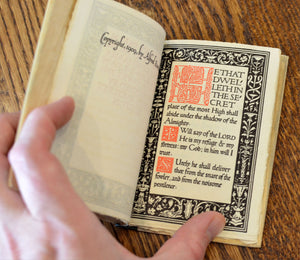 Copyright, 1902, by Alfred
HE THAT
DWEL-
LETH IN
THE SE-
CRET
place of the most High shall
abide under the shadow of the
Almighty.
I Will say of the LORD
He is my refuge & my
fortress: my God; in him will I
trust.
Surely he shall deliver
thee from the snare of the
fowler, and from the noisome
pestilence.